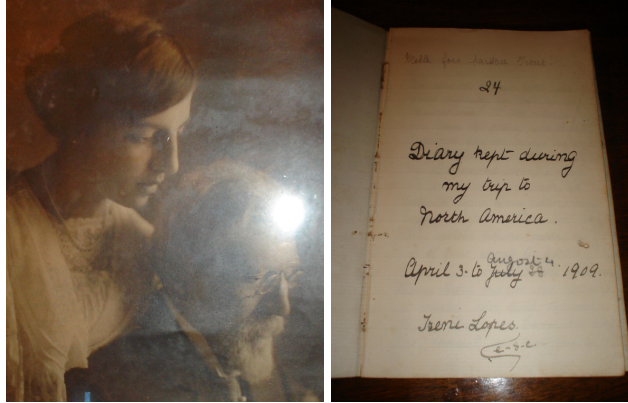 24
Diary kept during
my trip to
North America.
August 4.
April 3. to July 28 1909.
Irene Lopes.